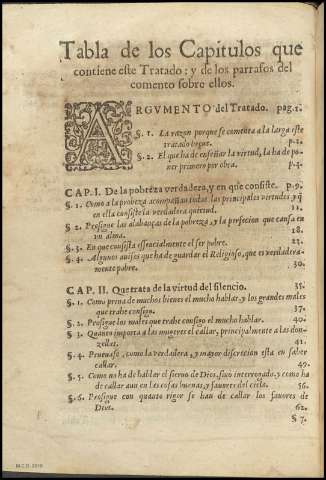 Tabla de los Capitulos que
contiene este Tratado: y de los parrafos del
comento sobre ellos.
ARGVMENTO del Tratado. pag. 1.
§. 1. La razon porque se comenta a la larga este
tratado le
§. 2. El que ha de enseñar la virtud, la ha de po-
ner primero por obra. p. 4.
CAP. I. De la pobreza verdadera, y en que consiste. p. 9.
§. 1. Como a la probeza acompañan todas las principales virtudes, y q̃
en ella consiste la verdadera quietud. 11.
§. 2. Prosigue las alabanças de la pobreza, y la perfecion que causa en
vn alma. 18.
§. 3. En que consista essencialmente el ser pobre. 23.
§. 4. Algunos auisos que ha de guardar el Religioso, que es verdadera-
mente pobre. 30.
CAP. II. Que trata de la virtud del silencio. 35.
§. 1. Como priua de muchos bienes el mucho hablar, y los grandes males
que trahe consigo. 37.
§. 2. Prosigue los males que trahe consigo el mucho hablar. 40.
§. 3. Quanto importa a las mugeres el callar, principalmente a las don-
zellas. 41.
§. 4. Prueuase, como la verdadera, y mayor discrecion esta en saber
callar. 49.
§. 5. Como no ha de hablar el sieruo de Dios, sino interrogado, y como ha
de callar aun en las cosas buenas, y fauores del cielo. 56.
§. 6. Prosigue con quanto rigor se han de callar los fauores de
Dios. 62.
§ 7.